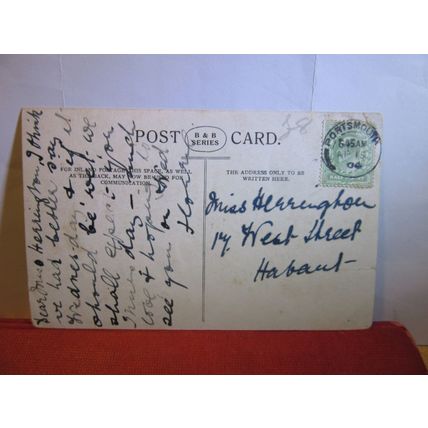 POST B & B SERIES CARD.
FOR INLAND POSTAGE THIS SPACE, AS WELL
AS THE BACK, MAY NOW BE USED FOR
COMMUNICATION.
THE ADDRESS ONLY TO BE
WRITTEN HERE.
38
PORTSMOUTH
5.45 AM
04
HALF
Dear Miss Herrington I think
we had better say
Wednesday & if it
should be wet we
shall expect you
Thurs day - much
love & hoping to
see you on Wed
Miss Herrington
17 West Street
Habant -